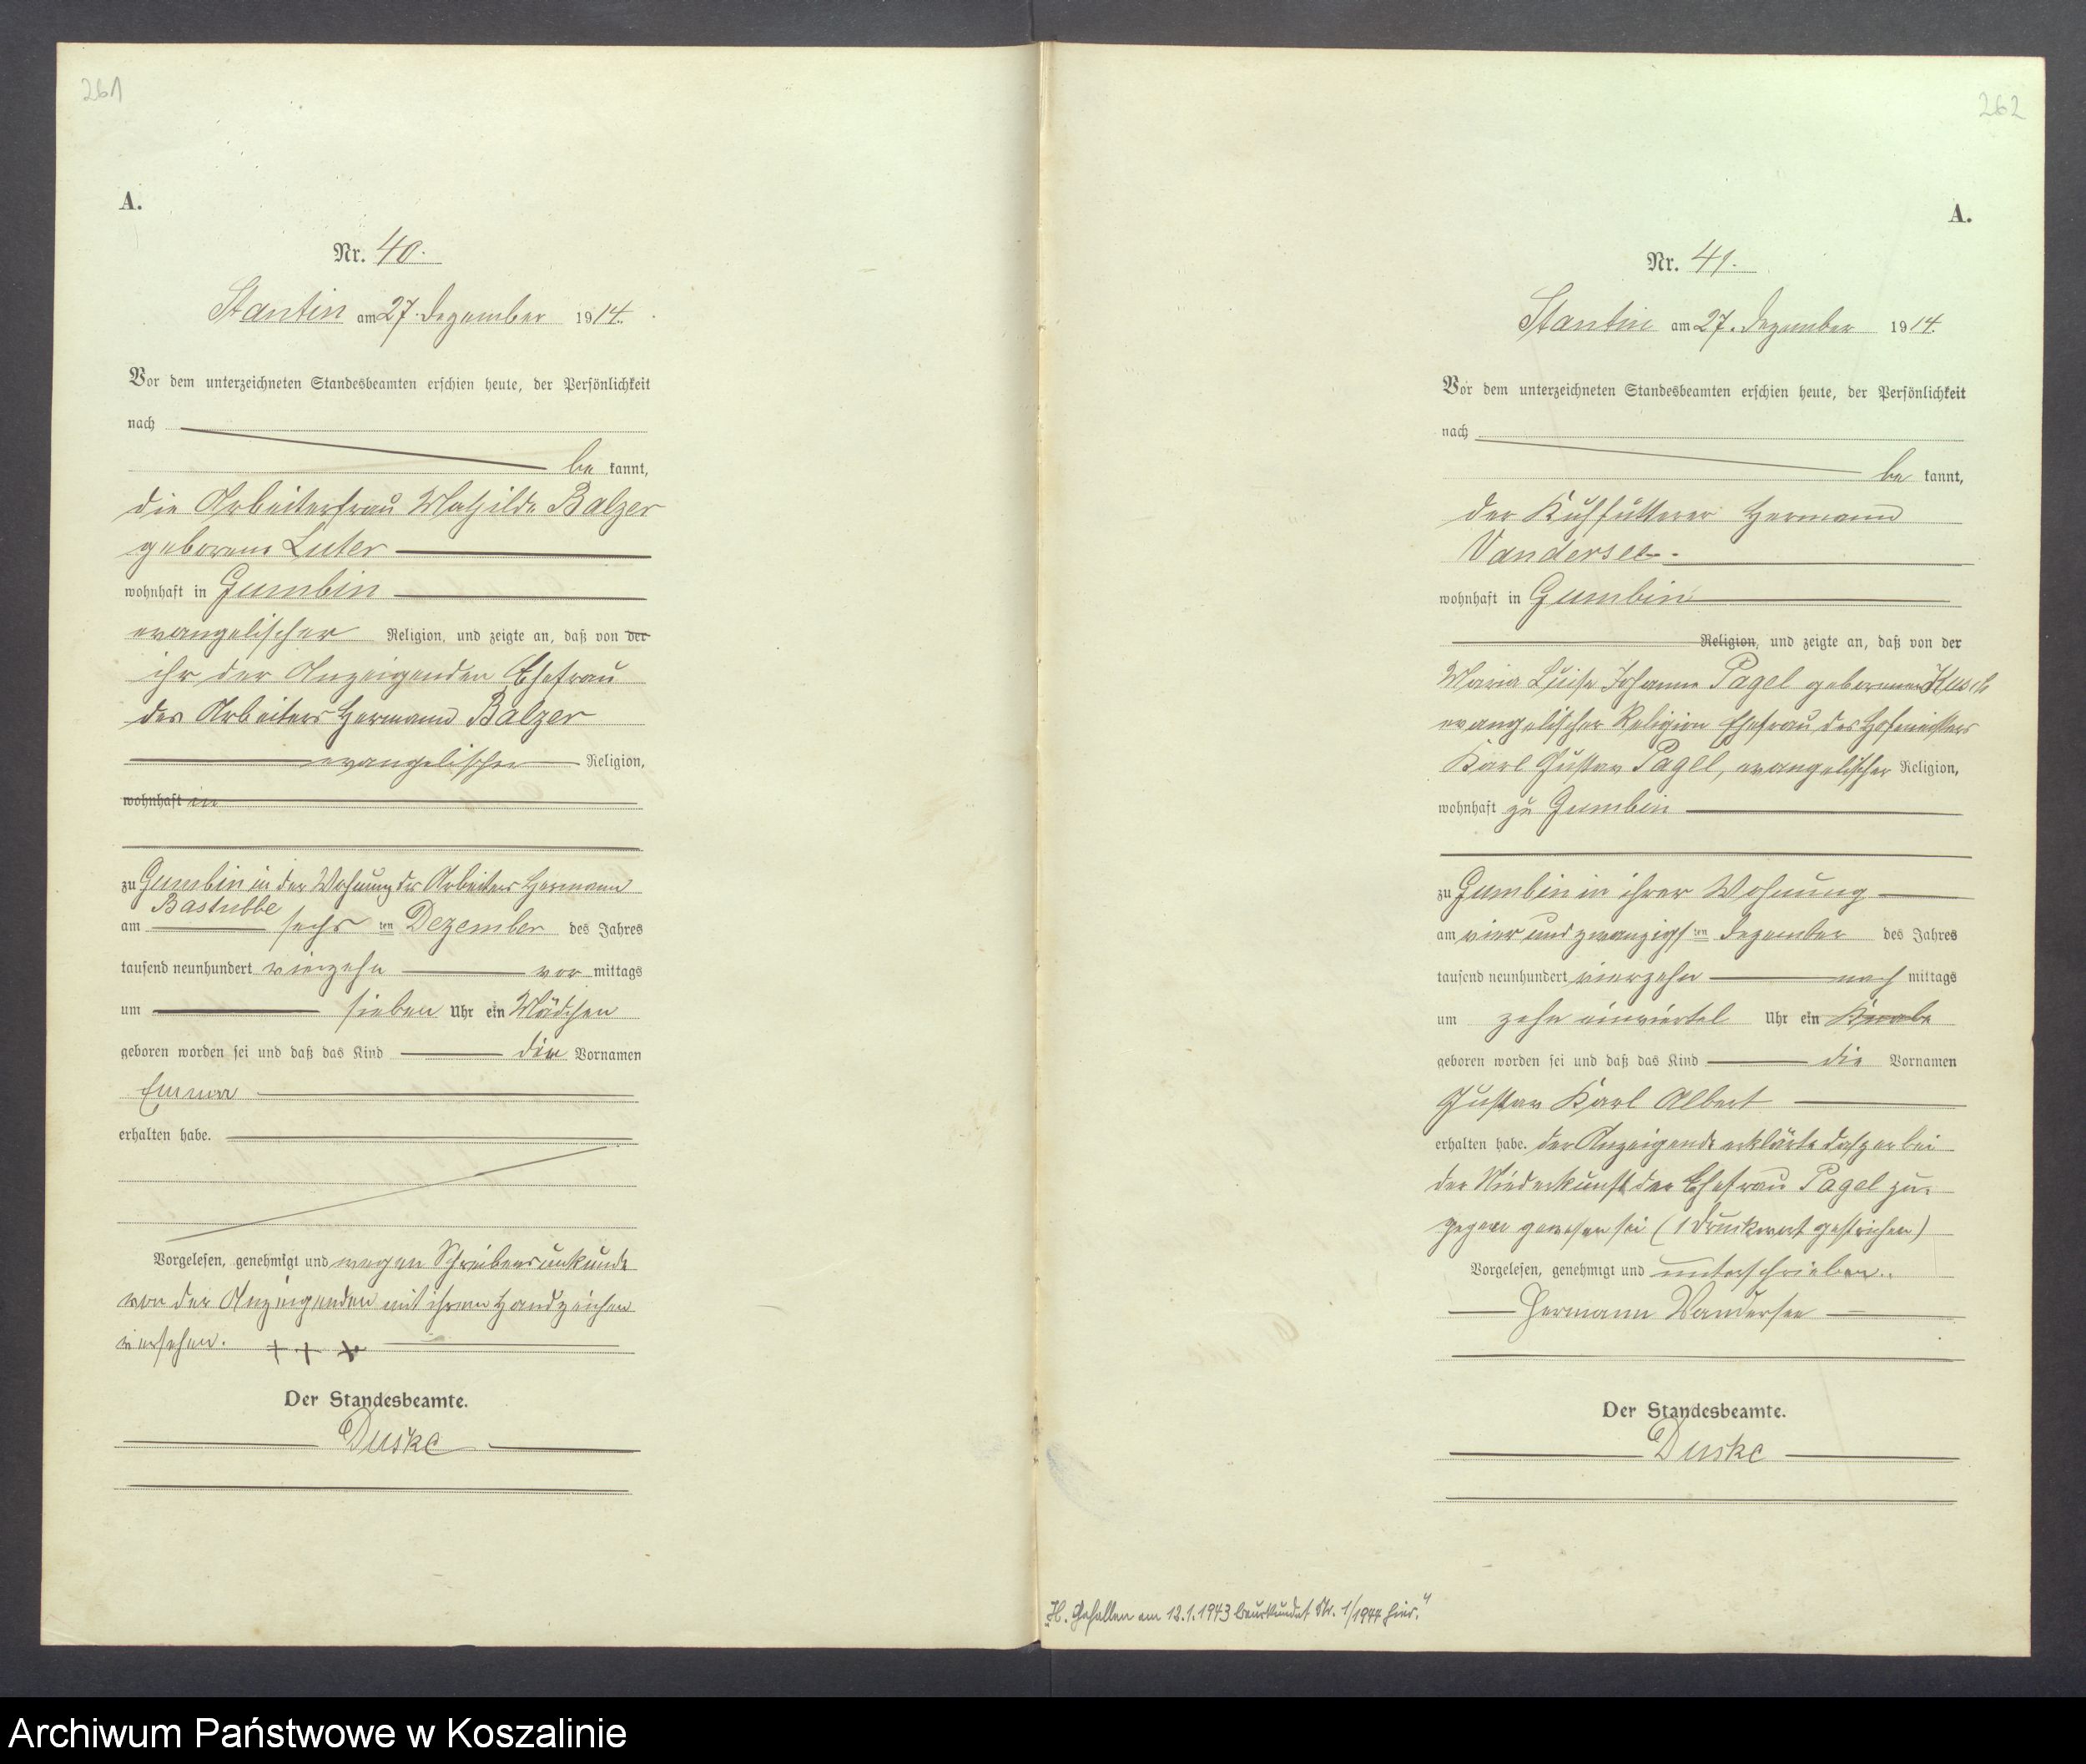 261
A.
Nr. 40.
Stantin am 27. Dezember 1914.
Vor dem unterzeichneten Standesbeamten erschien heute, der Persönlichkeit
nach
be kannt,
die Arbeiterfrau Mathilde Balzer
geborene Luter
wohnhaft in Gumbin
evangelischer Religion, und zeigte an, daß von der
ihr der Anzeigenden Ehefrau
des Arbeiters Hermann Balzer
evangelischer Religion,
wohnhaft in
zu Gumbin in der Wohnung des Arbeiters Hermann
Bastubbe
am sechs ten Dezember des Jahres
tausend neunhundert vierzehn vor mittags
um sieben Uhr ein Mädchen
geboren worden sei und daß das Kind den Vornamen
Emma
erhalten habe.
Vorgelesen, genehmigt und wegen Schreibensunkunde
von der Anzeigenden mit ihrem Handzeichen
versehen. + + +
Der Standesbeamte.
Duske
262
A.
Nr. 41.
Stantin am 27. Dezember 1914.
Vor dem unterzeichneten Standesbeamten erschien heute, der Persönlichkeit
nach
be kannt,
der Kuhfütterer Hermann
Vandersee
wohnhaft in Gumbin
Religion, und zeigte an, daß von der
Maria Luise Johanne Pagel geborenen
evangelischer Religion Ehefrau des Hofmeisters
Karl Gustav Pagel, evangelischer Religion,
wohnhaft zu Gumbin
zu Gumbin in ihrer Wohnung
am vier und zwanzigs ten Dezember des Jahres
tausend neunhundert vierzehn nach mittags
um zehn einviertel Uhr ein Knabe
geboren worden sei und daß das Kind die Vornamen
Gustav Karl Albert
erhalten habe. der Anzeigende erklärte daß er bei
der Niederkunft der Ehefrau Pagel zu-
gegen gewesen sei (1 Druckwort gestrichen)
Vorgelesen, genehmigt und unterschrieben.
Hermann Vandersee
Der Standesbeamte.
Duske
"H. Gefallen am 12.1.1943 beurkundet Nr. 1/1944 hier."
Archiwum Państwowe w Koszalinie